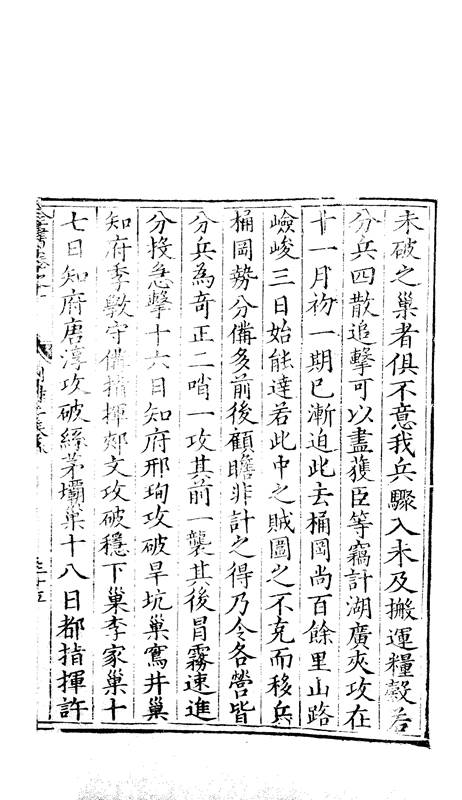 未破之巢者俱不意我兵驟入未及搬運糧穀若
分兵四散追擊可以盡獲臣等竊計湖廣夾攻在
十一月初一期已漸迫此去桶岡尚百餘里山路
嶮峻三日始能達若此中之賊圖之不克而移兵
桶岡勢分備多前後顧瞻非計之得乃令各營皆
分兵為奇正二哨一攻其前一襲其後冒霧速進
分投急擊十六日知府邢珣攻破旱坑巢寫井巢
知府季斆守備指揮郟文攻破穩下巢李家巢十
七日知府唐淳攻破絲茅壩巢十八日都指揮許